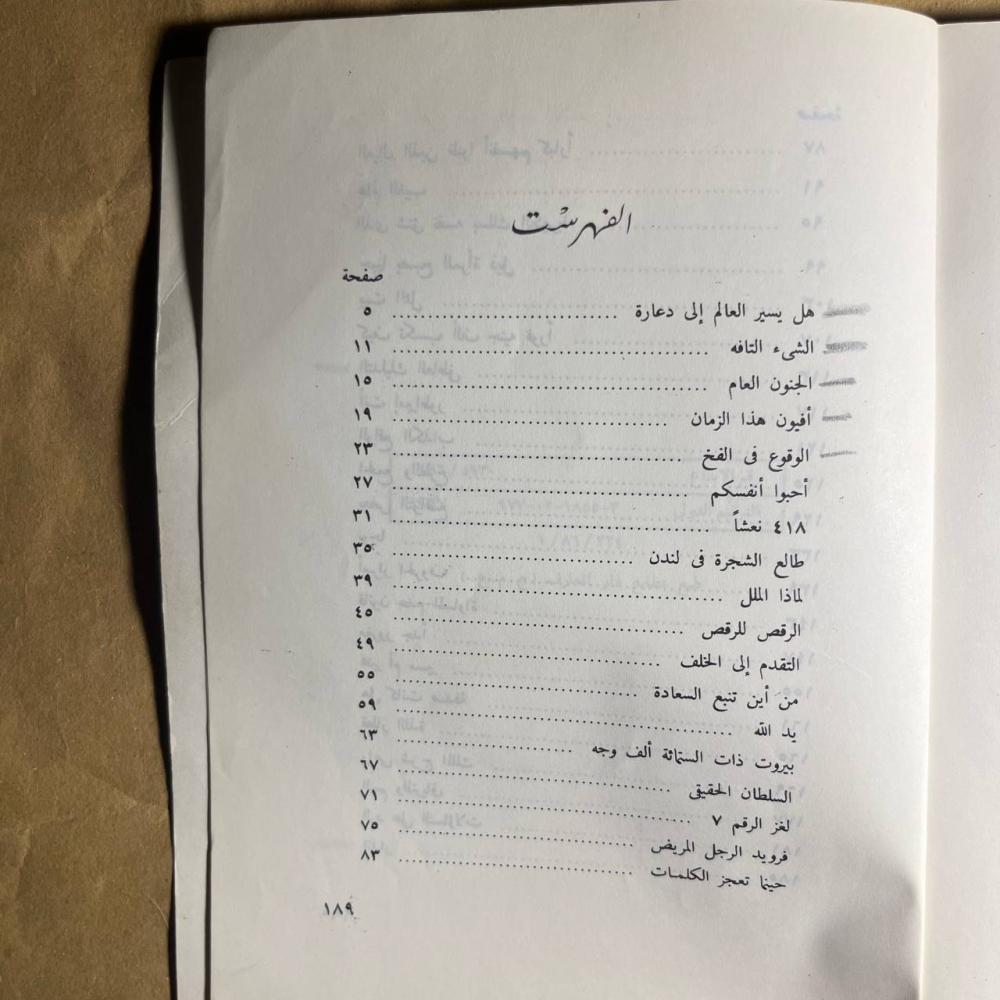 الفهرست
صفحة
هل يسير العالم إلى دعارة ........................ ٥
الشىء التافه ........................ ١١
الجنون العام ........................ ١٥
أفيون هذا الزمان ........................ ١٩
الوقوع فى الفخ ........................ ٢٣
أحبوا أنفسكم ........................ ٢٧
٤١٨ نعشاً ........................ ٣١
طالع الشجرة فى لندن ........................ ٣٥
لماذا الملل ........................ ٣٩
الرقص للرقص ........................ ٤٥
التقدم إلى الخلف ........................ ٤٩
من أين تنبع السعادة ........................ ٥٥
يد الله ........................ ٥٩
بيروت ذات الستمائة ألف وجه ........................ ٦٣
السلطان الحقيقى ........................ ٦٧
لغز الرقم ٧ ........................ ٧١
فرويد الرجل المريض ........................ ٧٥
حينما تعجز الكلمات ........................ ٨٣
١٨٩